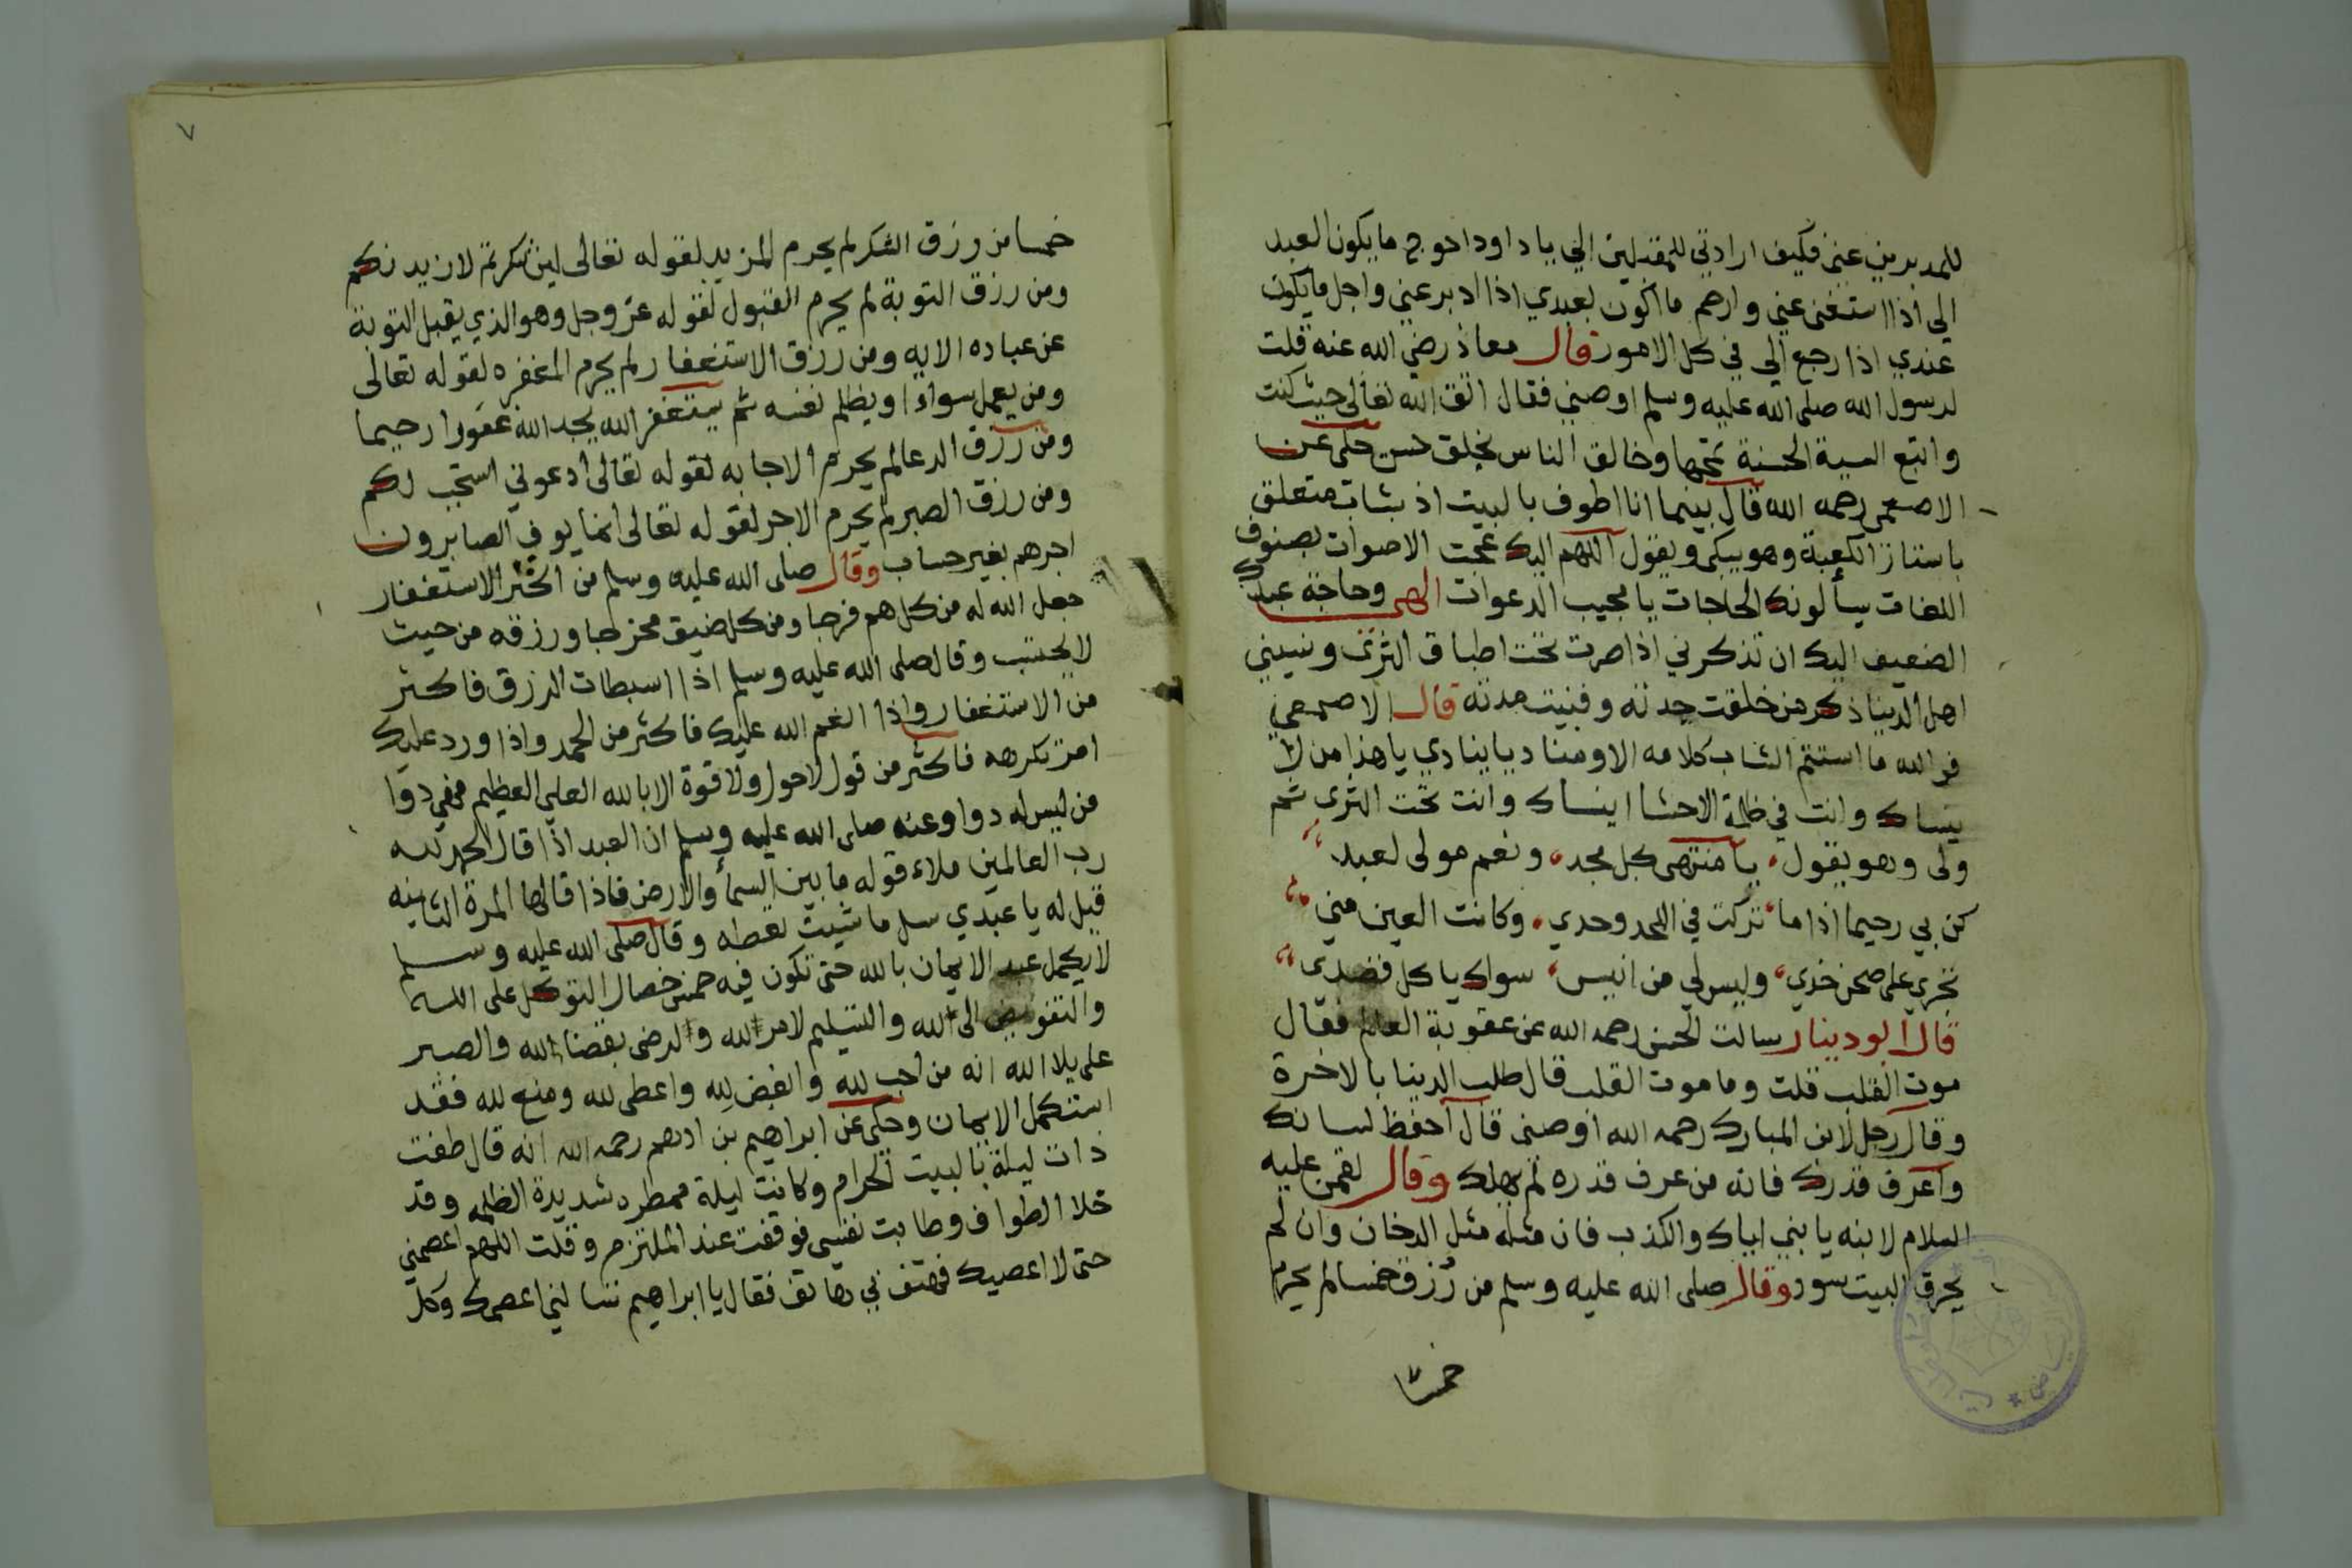 للمدبرين عني فكيف ارادتي للمقبلين الي يا داود احوج ما يكون العبد
الى اذا استغنى عني وارحم ما اكون بعبدي اذا ادبر عني واجل ما يكون
عندي اذا رجع الى في كل الامور قال معاذ رضي الله عنه قلت
لرسول الله صلى الله عليه وسلم اوصني فقال اتق الله تعالى حيث كنت
واتبع السية الحسنة تمحها وخالق الناس بخلق حسن حكى عن
الاصمعى رحمه الله قال بينما انا اطوف بالبيت اذ بشاب متعلق
باستار الكعبة وهو يبكى ويقول اللهم اليك عجت الاصوات بصنوف
اللغات يسألونك الحاجات يا مجيب الدعوات الهى وحاجة عبدك
الضعيف اليك ان تذكرني اذا صرت تحت اطباق الثرى ونسيني
اهل الدينا ذكر من خلقت جدته وفنيت مدته قال الاصمعي
فو الله ما استتم الشاب كلامه الا ومناد يا ينادي يا هذا من لا
ينساك وانت في ظلمة الاحشا اينساك وانت تحت الثرى ثم
ولى وهو يقول يا منتهى كل مجد ونعم مولى لعبد
كن بي رحيما اذا ما تركت في اللحد وحدي وكانت العين مني
تجري على صحن خدي وليس لي من انيس سواك يا كل قصدى
قال ابو دينار سالت الحسن رحمه الله عن عقوبة العالم فقال
موت القلب قلت وما موت القلب قال طلب الدينا بالاخرة
وقال رجل لابن المبارك رحمه الله اوصنى قال احفظ لسانك
واعرف قدرك فانه من عرف قدره لم يهلك وقال لقمن عليه
السلام لابنه يا بني اياك والكذب فان مثله مثل الدخان وان لم
يحرق البيت سود وقال صلى الله عليه وسلم من رزق خمسا لم يحرم
خمسا
٧
خمسا من رزق الشكر لم يحرم المزيد لقوله تعالى لين شكرتم لازيدنكم
ومن رزق التوبة لم يحرم القبول لقوله عز وجل وهو الذي يقبل التوبة
عن عباده الايه ومن رزق الاستغفار لم يحرم المغفره لقوله تعالى
ومن يعمل سواءا او يظلم نفسه ثم يستغفر الله يجد الله غفورا رحيما
ومن رزق الدعا لم يحرم الاجابه لقوله تعالى ادعوني استجب لكم
ومن رزق الصبر لم يحرم الاجر لقوله تعالى انما يوفي الصابرون
اجرهم بغير حساب وقال صلى الله عليه وسلم من اكثر الاستغفار
جعل الله له من كل هم فرجا ومن كل ضيق مخرجا ورزقه من حيث
لا يحتسب وقال صلى الله عليه وسلم اذا اسبطات الرزق فاكثر
من الاستغفار واذا انعم الله عليك فاكثر من الحمد واذا ورد عليك
امر تكرهه فاكثر من قول لا حول ولا قوة الا بالله العلي العظيم فهي دوا
من ليس له دوا وعنه صلى الله عليه وسلم ان العبد اذا قال الحمد لله
رب العالمين ملاء قوله ما بين السماء والارض فاذا قالها المرة الثانيه
قيل له يا عبدي سل ما شيت تعطه وقال صلى الله عليه وسلم
لا يكمل عبد الايمان بالله حتى تكون فيه خمس خصال التوكل على الله
والتفويض الى الله والتسليم لامر الله والرضى بقضا الله والصبر
على بلا الله انه من احب لله وابغض لله واعطى لله ومنع لله فقد
استكمل الايمان وحكى عن ابراهيم بن ادهم رحمه الله انه قال طفت
ذات ليلة بالبيت الحرام وكانت ليلة ممطره شديدة الظلمه وقد
خلا الطواف وطابت نفسي فوقفت عند الملتزم وقلت اللهم اعصمني
حتى لا اعصيك فهتف بي هاتف فقال يا ابراهيم تسالني اعصمك وكل